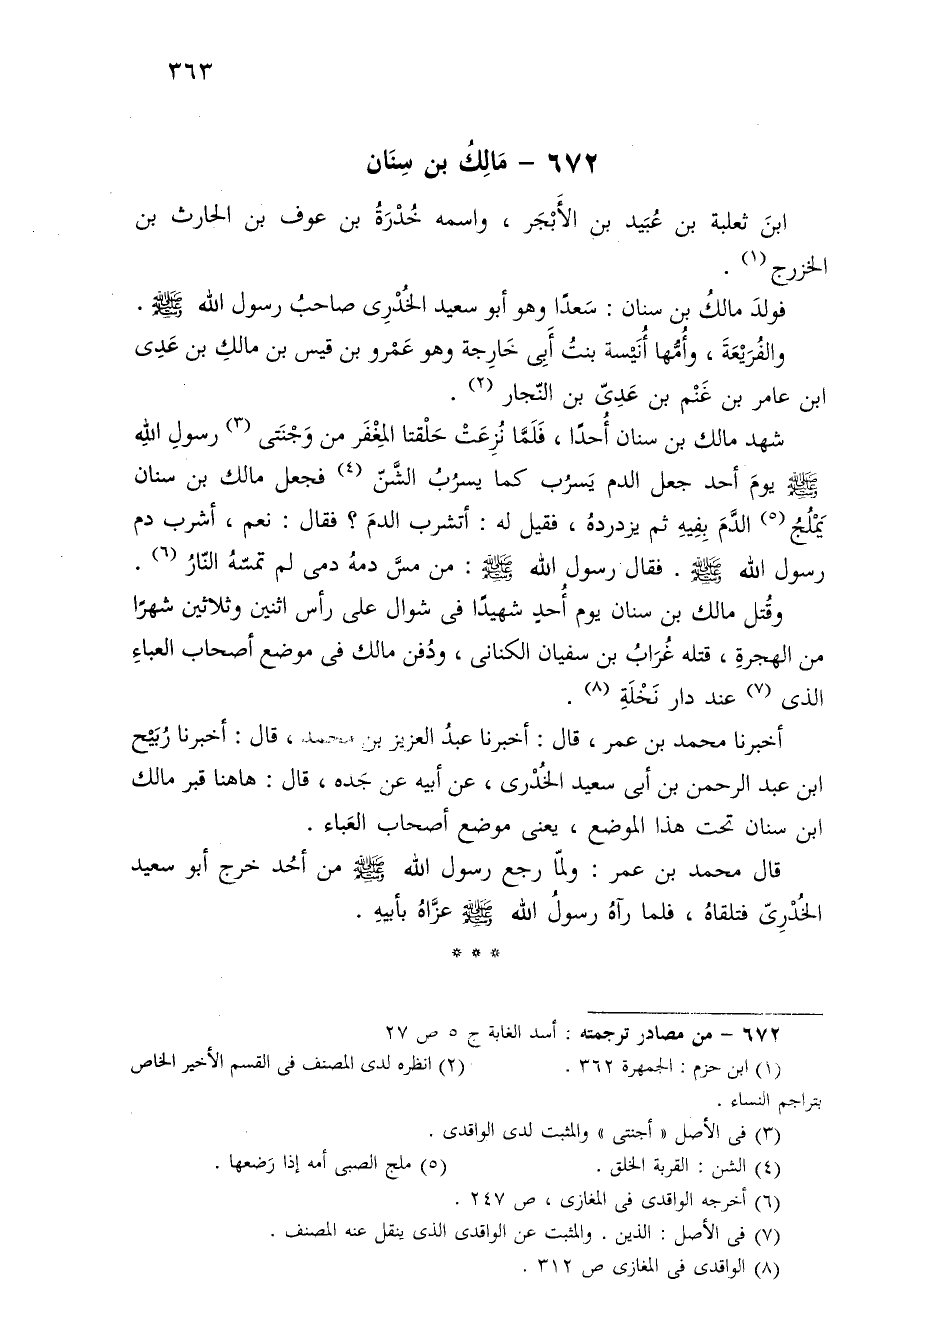 ٣٦٣
٦٧٢ - مَالِكُ بن سِنَان
ابنَ ثعلبة بن عُبَيد بن الأَبْجَر ، واسمه خُدْرَةُ بن عوف بن الحارث بن
الخزرج (١) .
فولدَ مالكُ بن سنان : سَعدًا وهو أبو سعيد الخُدْرِى صاحبُ رسول الله ﷺ .
والفُرَيْعَةَ ، وأُمُّها أُنَيْسة بنتُ أَبِى خَارِجة وهو عَمْرو بن قيس بن مالكِ بن عَدِى
ابن عامر بن غَنْم بن عَدِىّ بن النّجار (٢) .
شهد مالك بن سنان أُحدًا ، فَلَمَّا نُزِعَتْ حَلْقتا المِغْفَر من وَجْنَتى (٣) رسولِ اللهِ
ﷺ يومَ أحد جعل الدم يَسرُب كما يسرُبُ الشَّنّ (٤) فجعل مالك بن سنان
يَمْلُجُ (٥) الدَّمَ بِفِيهِ ثم يزدردهُ ، فقيل له : أتشرب الدمَ ؟ فقال : نعم ، أشرب دم
رسول الله ﷺ . فقال رسول الله ﷺ : من مسَّ دمهُ دمى لم تمسّهُ النّارُ (٦) .
وقُتل مالك بن سنان يوم أُحدٍ شهيدًا فى شوال على رأس اثنين وثلاثين شهرًا
من الهجرةِ ، قتله غُرَابُ بن سفيان الكنانى ، ودُفن مالك فى موضع أصحاب العباءِ
الذى (٧) عند دار نَخْلَةِ (٨) .
أخبرنا محمد بن عمر ، قال : أخبرنا عبدُ العزيز بن محمد ، قال : أخبرنا رُبَيْح
ابن عبد الرحمن بن أبى سعيد الخُدْرى ، عن أبيه عن جَده ، قال : هاهنا قبر مالك
ابن سنان تحت هذا الموضع ، يعنى موضع أصحاب العَباء .
قال محمد بن عمر : ولمّا رجع رسول الله ﷺ من أحُد خرج أبو سعيد
الخُدْرِىّ فتلقاهُ ، فلما رآهُ رسولُ الله ﷺ عزَّاهُ بأبيهِ .
* * *
٦٧٢ - من مصادر ترجمته : أسد الغابة ج ٥ ص ٢٧
(١) ابن حزم : الجمهرة ٣٦٢ . (٢) انظره لدى المصنف فى القسم الأخير الخاص
بتراجم النساء .
(٣) فى الأصل « أجنتى » والمثبت لدى الواقدى .
(٤) الشن : القربة الخلق . (٥) ملج الصبى أمه إذا رَضعها .
(٦) أخرجه الواقدى فى المغازى ، ص ٢٤٧ .
(٧) فى الأصل : الذين . والمثبت عن الواقدى الذى ينقل عنه المصنف .
(٨) الواقدى فى المغازى ص ٣١٢ .